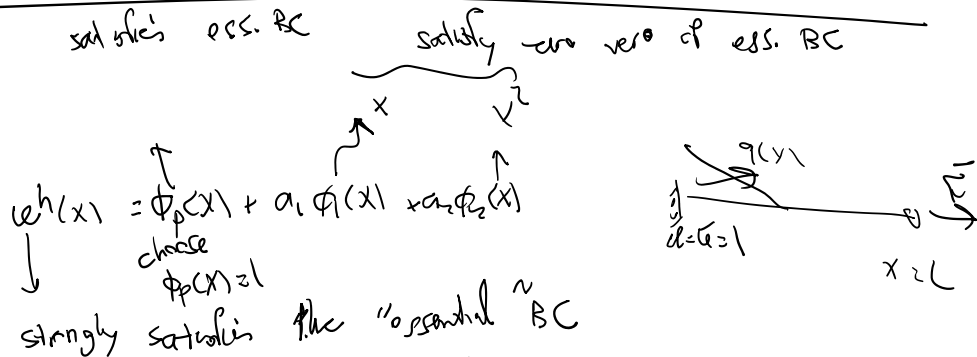 satisfies ess. BC satisfy zero vers of ess. BC
x x²
q(x)
uʰ(x) = ϕₚ(x) + a₁ ϕ₁(x) + a₂ϕ₂(x)
choose
ϕₚ(x)=1
ū=1
x = L
strongly satisfies the "essential" BC